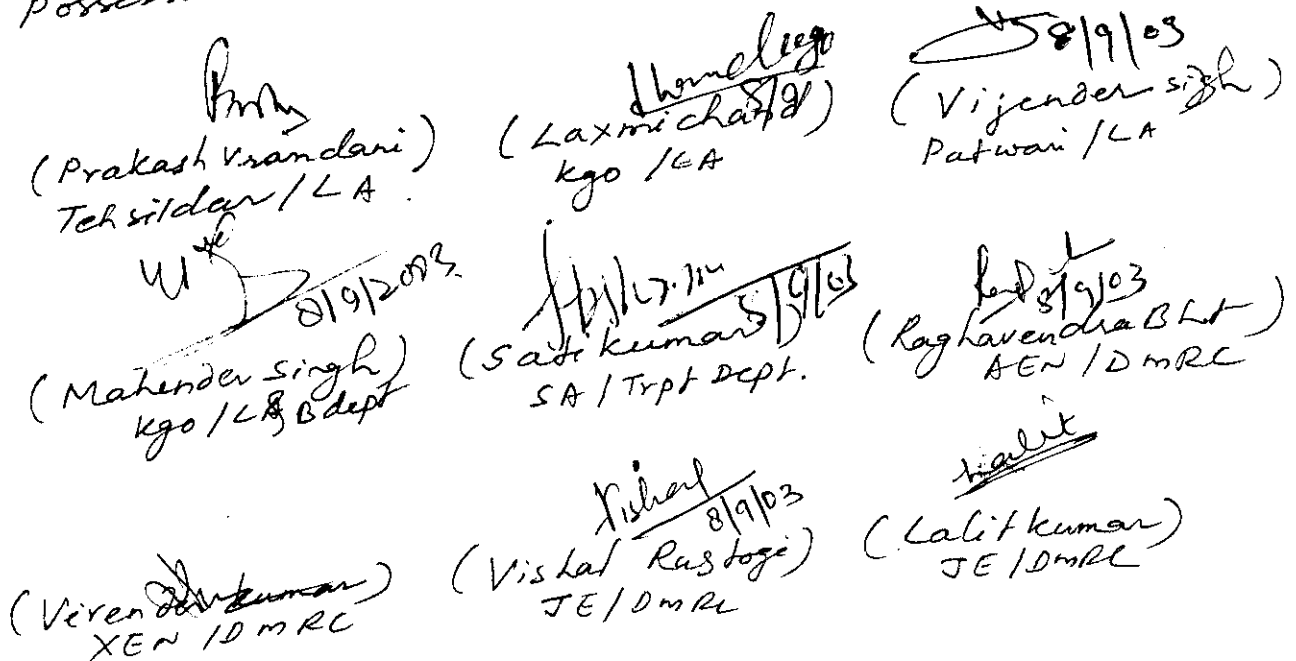 (Prakash Vramdani)
Tehsildar / LA.
(Laxmi chand)
kgo / LA
8/9/03
(Vijender sigh)
Patwari / LA
8/9/2003.
(Mahender Singh)
kgo / L&B dept
8/9/03
(Sati kumar)
SA / Trpt Dept.
8/9/03
(Raghavendra Bht)
AEN / DMRC
(Virender kumar)
XEN / DMRC
Vishal
8/9/03
(Vishal Rastogi)
JE / DMRC
Lalit
(Lalit kumar)
JE / DMRC